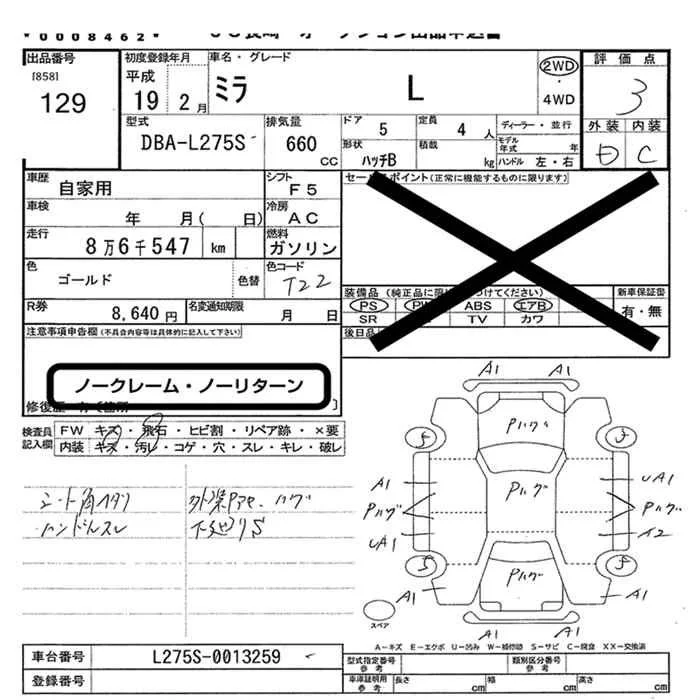 *0008462*
出品番号
[858]
129
初度登録年月
平成
19 2月
車名・グレード
ミラ L
2WD
・
4WD
評価点
3
外装 内装
D C
型式
DBA-L275S
排気量
660
CC
ドア
5
定員
4 人
形状
ハッチB
積載
kg
ディーラー・並行
モデル年式 年
ハンドル 左・右
車歴
自家用
シフト
F5
車検
年 月( 日)
冷房
AC
走行
8万6千547 km
燃料
ガソリン
色
ゴールド
色替
色コード
T22
R券
8,640 円
名変通知期限
月 日
セールスポイント(正常に機能するものに限ります)
装備品(純正品に限 つけてください)
PS PW ABS エアB
SR TV カワ
新車保証書
有・無
後日品
注意事項申告欄(不具合内容等は具体的に記入して下さい)
ノークレーム・ノーリターン
検査員
記入欄
FW キズ・飛石・ヒビ割・リペア跡・×要
内装 キズ・汚レ・コゲ・穴・スレ・キレ・破レ
ハンドルスレ
A1 A1
Pハゲ
5
A1
Pハゲ
UA1
Pハゲ
UA1
Pハゲ
5
Pハゲ
A1 A1
A1 A1
スペア
A-キズ E-エクボ U-凹み W-補修跡 S-サビ C-腐食 XX-交換済
車台番号
L275S-0013259
登録番号
型式指定番号
参考
類別区分番号
参考
車庫証明用
参考
長さ cm
幅 cm
高さ cm